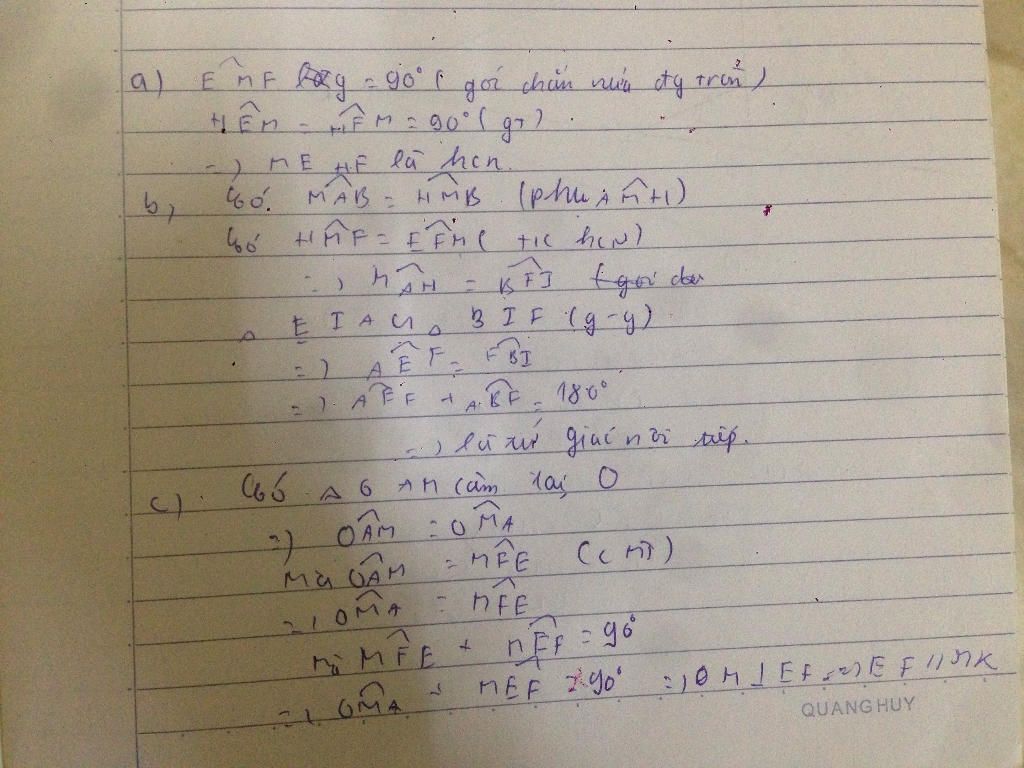 a) EMF = 90° ( góc chắn nửa đg tròn )
HEM = HFM = 90° ( gt )
=) ME HF là hcn.
b, Có MAB = HMB (phụ AMH)
Có HMF = EFM ( t/c hcn)
=) MAH = BFI
△ EIA △ BIF (g-g)
=) AEF = FBI
=) AEF + ABF = 180°
=) là tứ giác nội tiếp.
c) Có △ OAM cân tại O
=) OAM = OMA
Mà OAM = MFE (CMT)
=) OMA = MFE
mà MFE + MEF = 90°
=) OMA + MEF = 90° =) OM ⊥ EF =) EF // MK
QUANG HUY